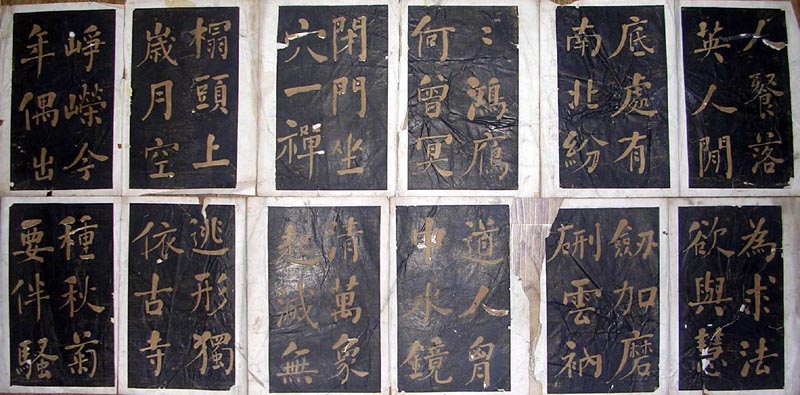 人餐落
英人閒
底處有
南北紛
〻鴻鴈
何曾冥
閉門坐
穴一禪
榻頭上
歲月空
崢嶸今
年偶出
為求法
欲與慧
劒加磨
硎雲衲
道人胷
中水鏡
清萬象
起滅無
逃形獨
依古寺
種秋菊
要伴騷